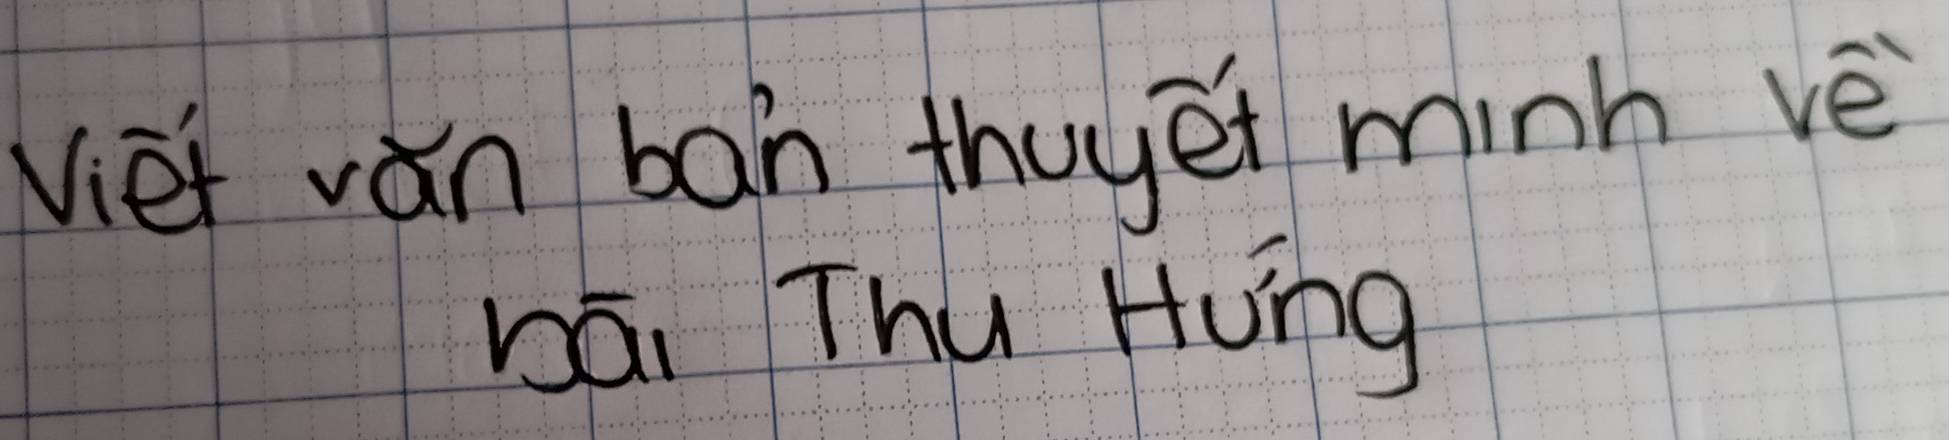 Viết văn bản thuyết minh về
bài Thu Hứng